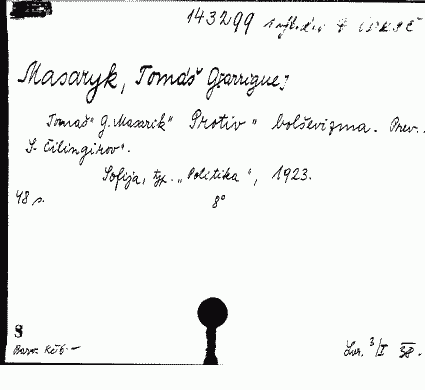 143299
Masaryk, Tomáš Garrigue;
Tomaš" G. Masarik" Protiv" bolševizma. Prev.
S. Čilingirov".
Sofija, typ. „Politika", 1923.
48 s. 8°
8
Barv. Keťb.— Lur. 3/I 38.